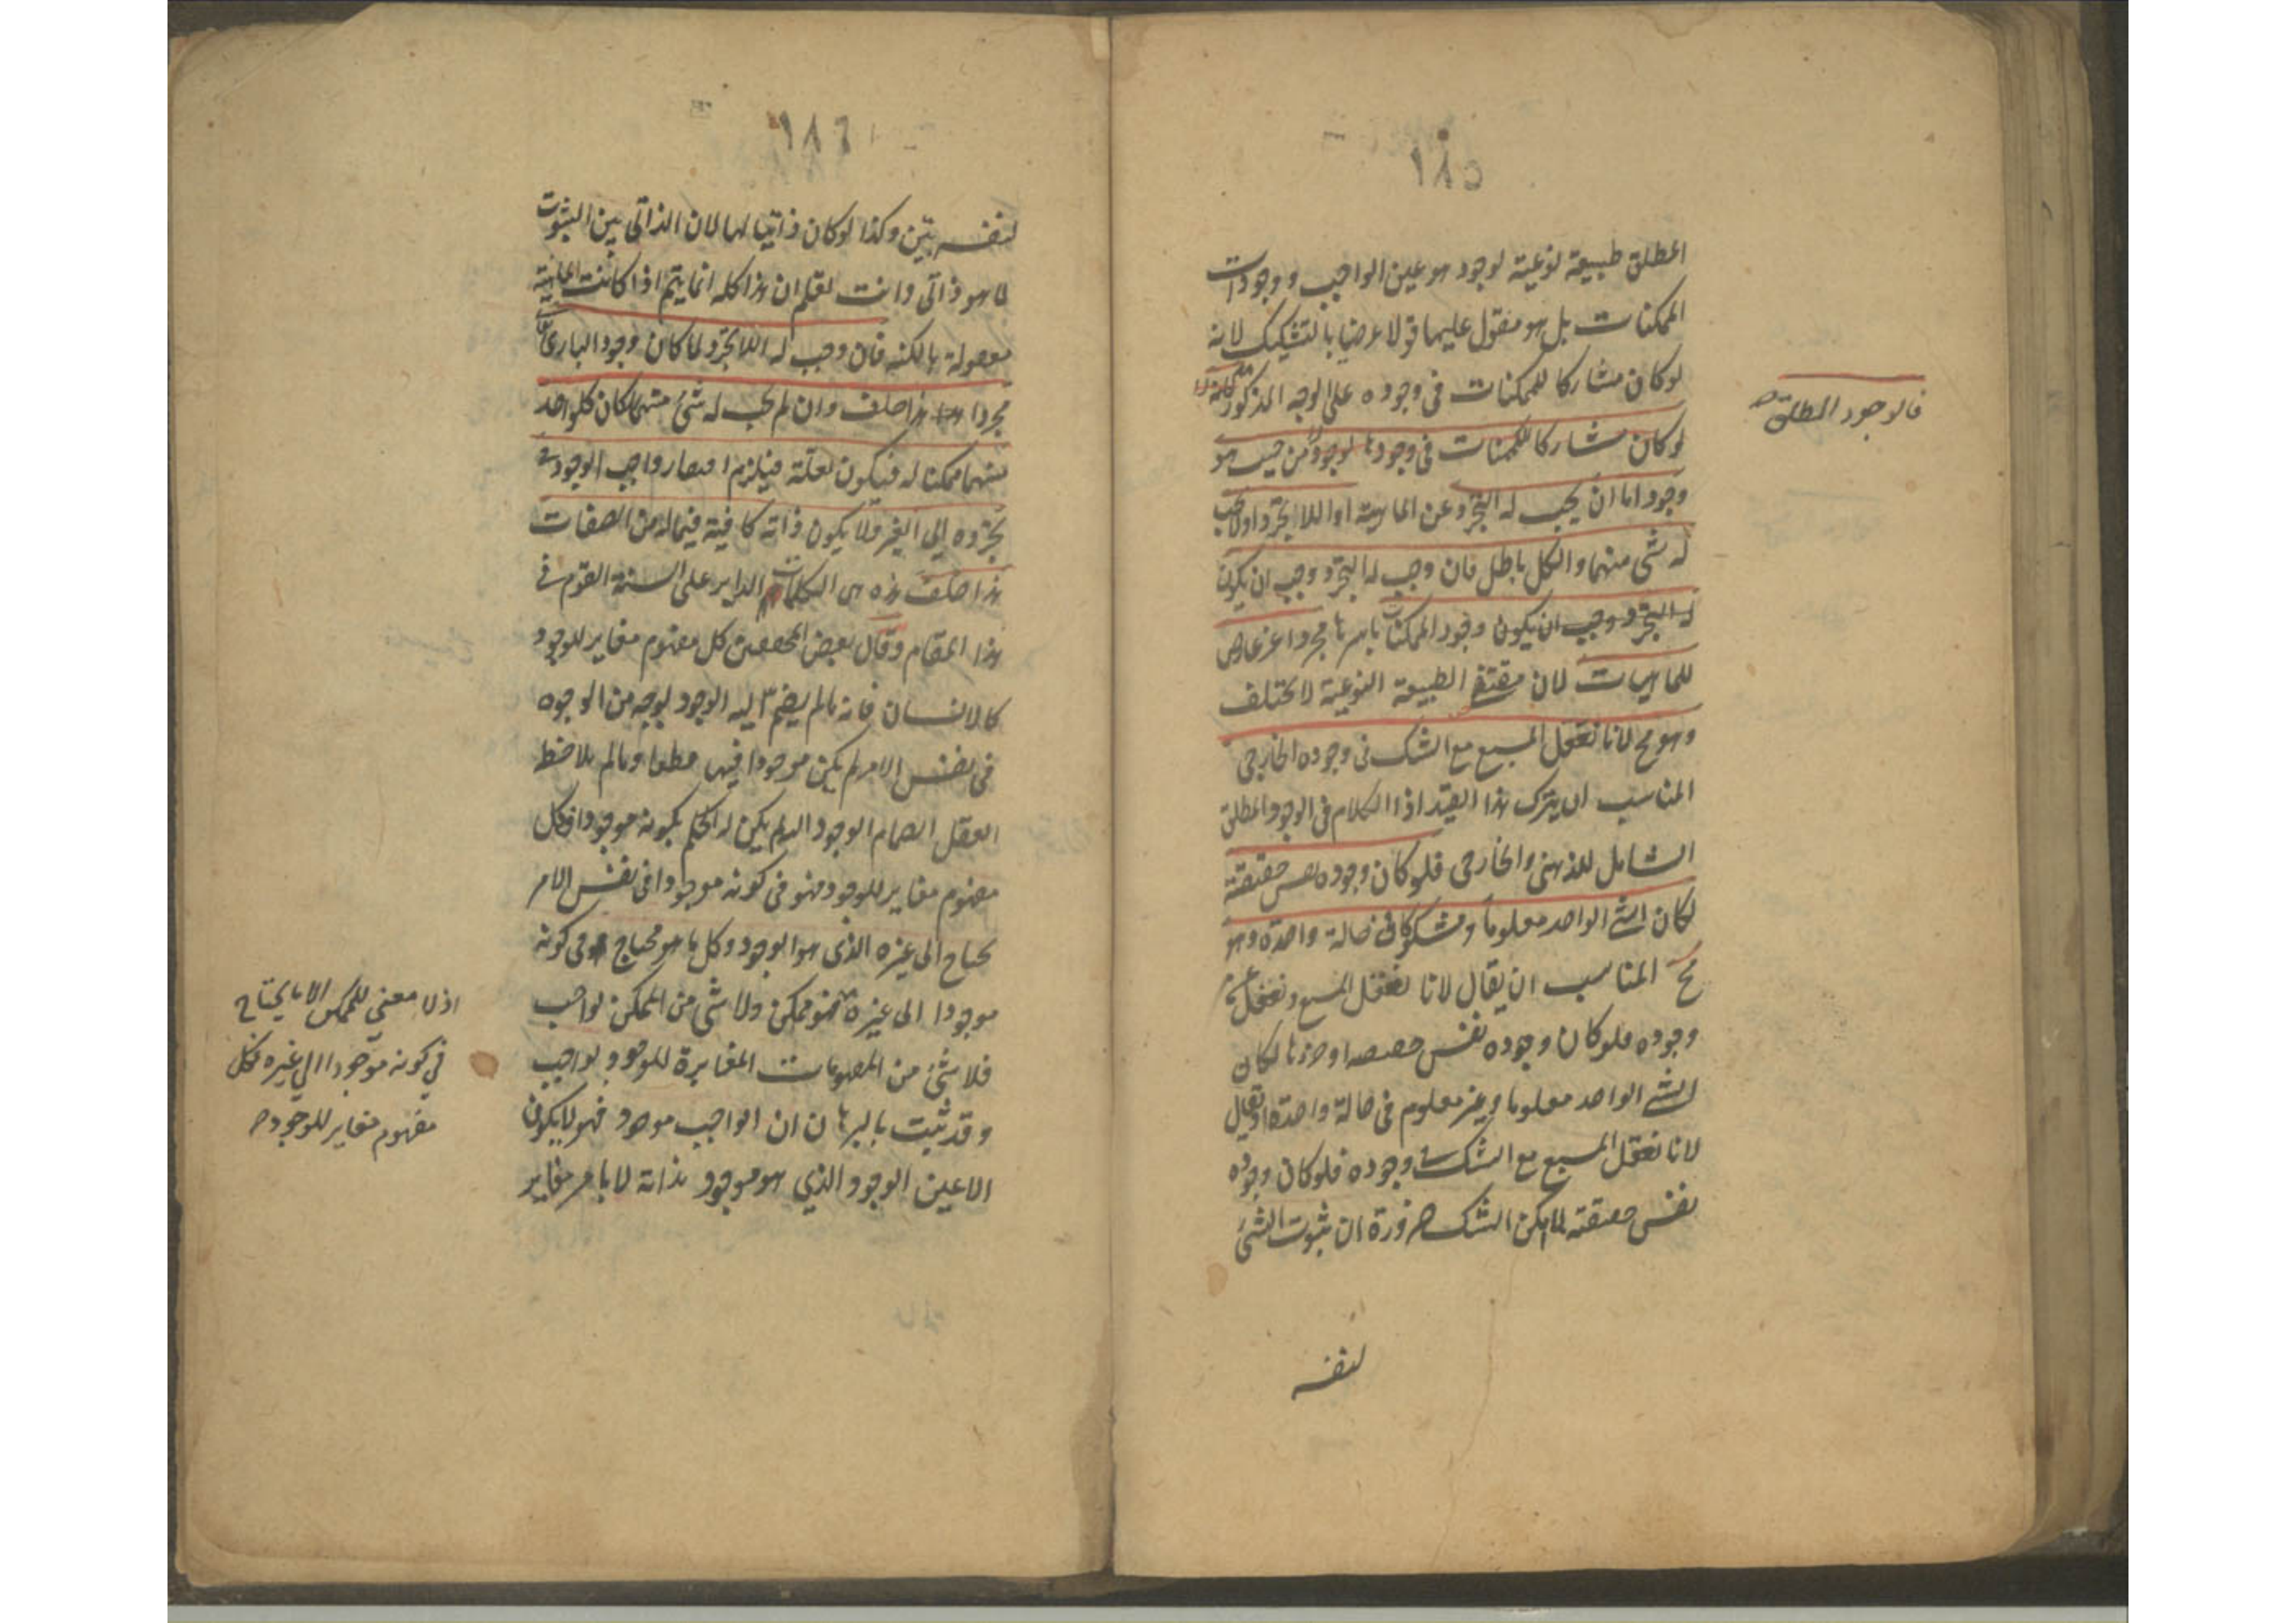 ١٨٥
المطلق طبيعة نوعية لوجود هو عين الواجب ووجودات
الممكنات بل هو مقول عليهما قولا عرضيا بالتشكيك لانه
لو كان مشاركا للممكنات في وجوده على الوجه المذكور
لو كان مشاركا للممكنات في وجودها لوجود من حيث هو
وجود اما ان يجب له التجرد عن الماهية او اللا تجرد او لا يجب
له شئ منهما والكل باطل فان وجب له التجرد وجب ان يكون
له التجرد وجب ان يكون وجود الممكنات باسرها مجردا غير عارض
للماهيات لان مقتضى الطبيعة النوعية لا تختلف
وهو مح لانا نعقل المسبع مع الشك في وجوده الخارجي
المناسب ان يترك هذا القيد اذ الكلام في الوجود المطلق
الشامل للذهني والخارجي فلو كان وجوده نفس حقيقته
لكان الشئ الواحد معلوما ومشكوكا في حالة واحدة وهو
مح المناسب ان يقال لانا نعقل المسبع ونغفل عن
وجوده فلو كان وجوده نفس حقيقته او جزءها لكان
الشئ الواحد معلوما وغير معلوم في حالة واحدة او يقال
لانا نعقل المسبع مع الشك في وجوده فلو كان وجوده
نفس حقيقته لما امكن الشك ضرورة ان ثبوت الشئ
لنفسه
فالوجود المطلق صح
١٨٦
لنفسه بين وكذا لو كان ذاتيا لها لان الذاتي بين الثبوت
لما هو ذاتي وانت تعلم ان هذا كله انما يتم اذا كانت الماهية
معقولة بالكنه فان وجب له اللا تجرد لما كان وجود الباري تعالى
مجردا هذا خلف وان لم يجب له شئ منهما كان كل واحد
منهما ممكنا له فيكون لعلة فيلزم افتقار واجب الوجود في
تجرده الى الغير فلا يكون ذاته كافية فيما له من الصفات
هذا خلف هذه هى الكلمات الداير على السنة القوم في
هذا المقام وقال بعض المحققين كل مفهوم مغاير للوجود
كالانسان فانه ما لم ينضم اليه الوجود بوجه من الوجوه
في نفس الامر لم يكن موجودا فيها قطعا وما لم يلاحظ
العقل انضمام الوجود اليه لم يكن له الحكم بكونه موجودا فكل
مفهوم مغاير للوجود فهو في كونه موجودا في نفس الامر
يحتاج الى غيره الذي هو الوجود وكل ما هو محتاج في كونه
موجودا الى غيره فهو ممكن ولا شئ من الممكن بواجب
فلا شئ من المفهومات المغايرة للوجود بواجب
وقد ثبت بالبرهان ان الواجب موجود فهو لا يكون
الا عين الوجود الذي هو موجود بذاته لا بامر مغاير
اذ لا معنى للممكن الا ما يحتاج
في كونه موجودا الى غيره فكل
مفهوم مغاير للوجود صح